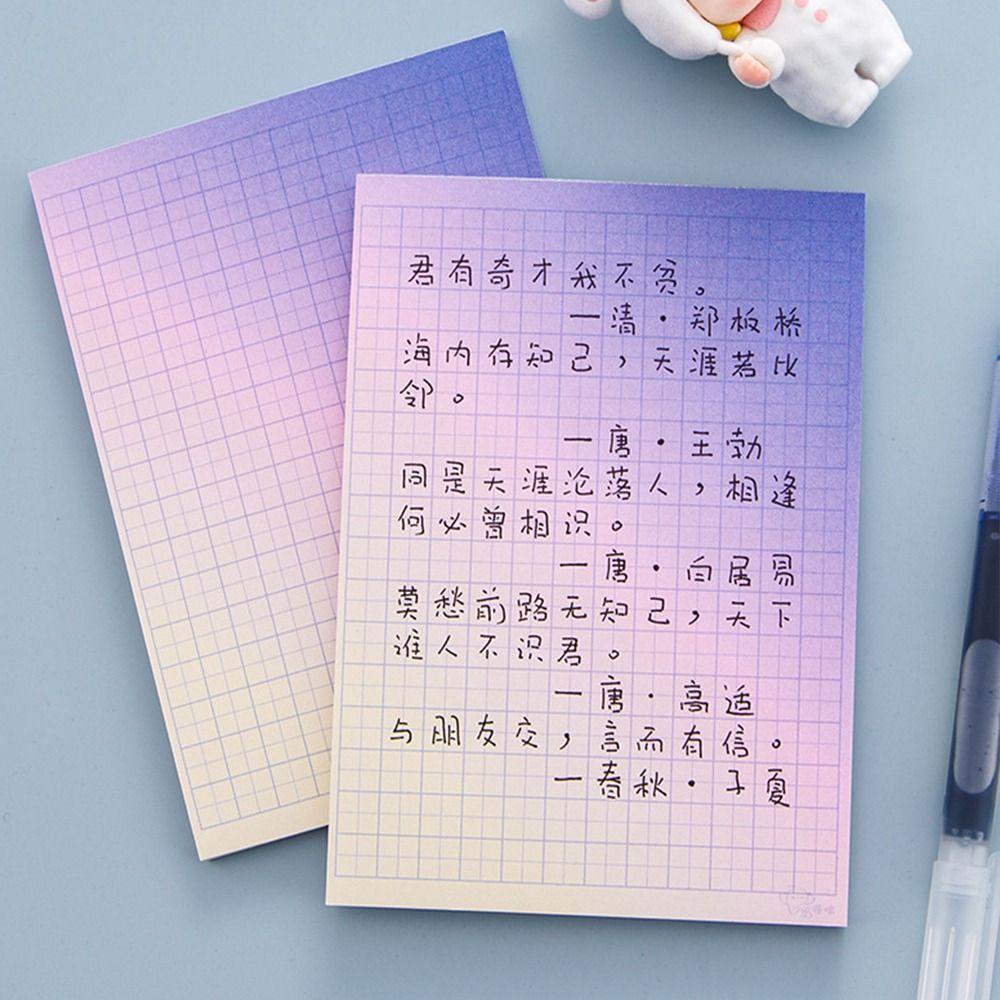 君有奇才我不贫。
一清·郑板桥
海内存知己，天涯若比
邻。
一唐·王勃
同是天涯沦落人，相逢
何必曾相识。
一唐·白居易
莫愁前路无知己，天下
谁人不识君。
一唐·高适
与朋友交，言而有信。
一春秋·子夏